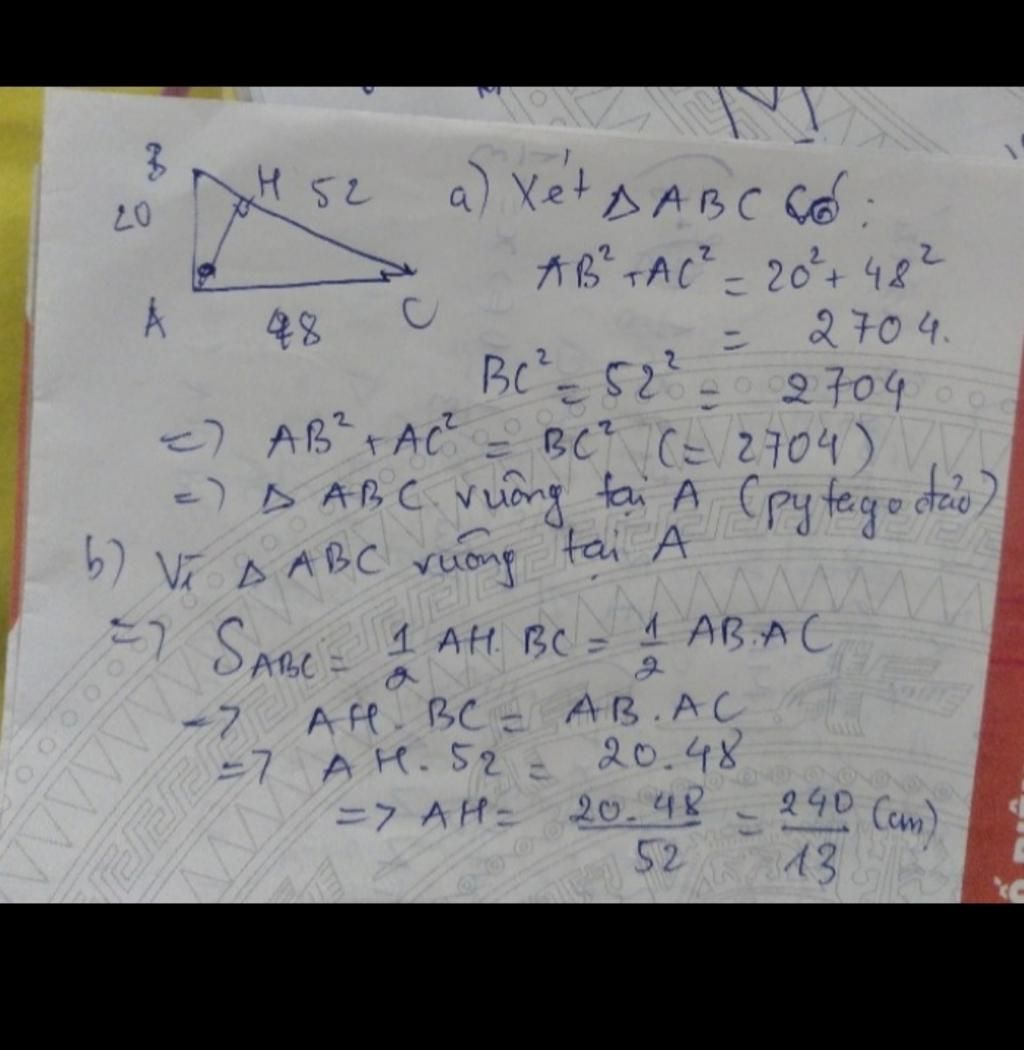 B
H 52
20
A
48
C
a) Xét Δ ABC có :
AB² + AC² = 20² + 48²
= 2704.
BC² = 52² = 2704
=> AB² + AC² = BC² (= 2704)
=> Δ ABC vuông tại A (pytago đảo)
b) Vì Δ ABC vuông tại A
=> S_ABC = 1/2 AH. BC = 1/2 AB.AC
=> AH. BC = AB. AC
=> AH. 52 = 20.48
=> AH = 20.48/52 = 240/13 (cm)